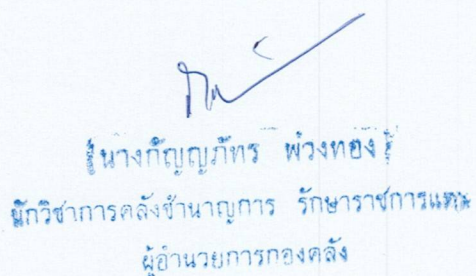 (นางกัญญภัทร พ่วงทอง)
นักวิชาการคลังชำนาญการ รักษาราชการแทน
ผู้อำนวยการกองคลัง